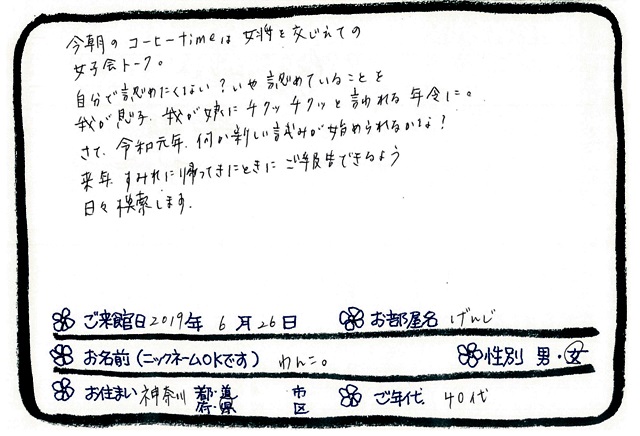 今朝のコーヒーtimeは女将を交じえての
女子会トーク。
自分で認めたくない？いや認めていることを
我が息子、我が娘にチクッチクッと言われる年令に。
さて、令和元年、何か新しい試みが始められるかな？
来年、すみれに帰ってきたときにご報告できるよう
日々検索します。
ご来館日 2019年 6月26日 お部屋名 げんじ
お名前（ニックネームOKです） わんこ。 性別 男・女
お住まい 神奈川 都・道 府・県 市 区 ご年代 40代